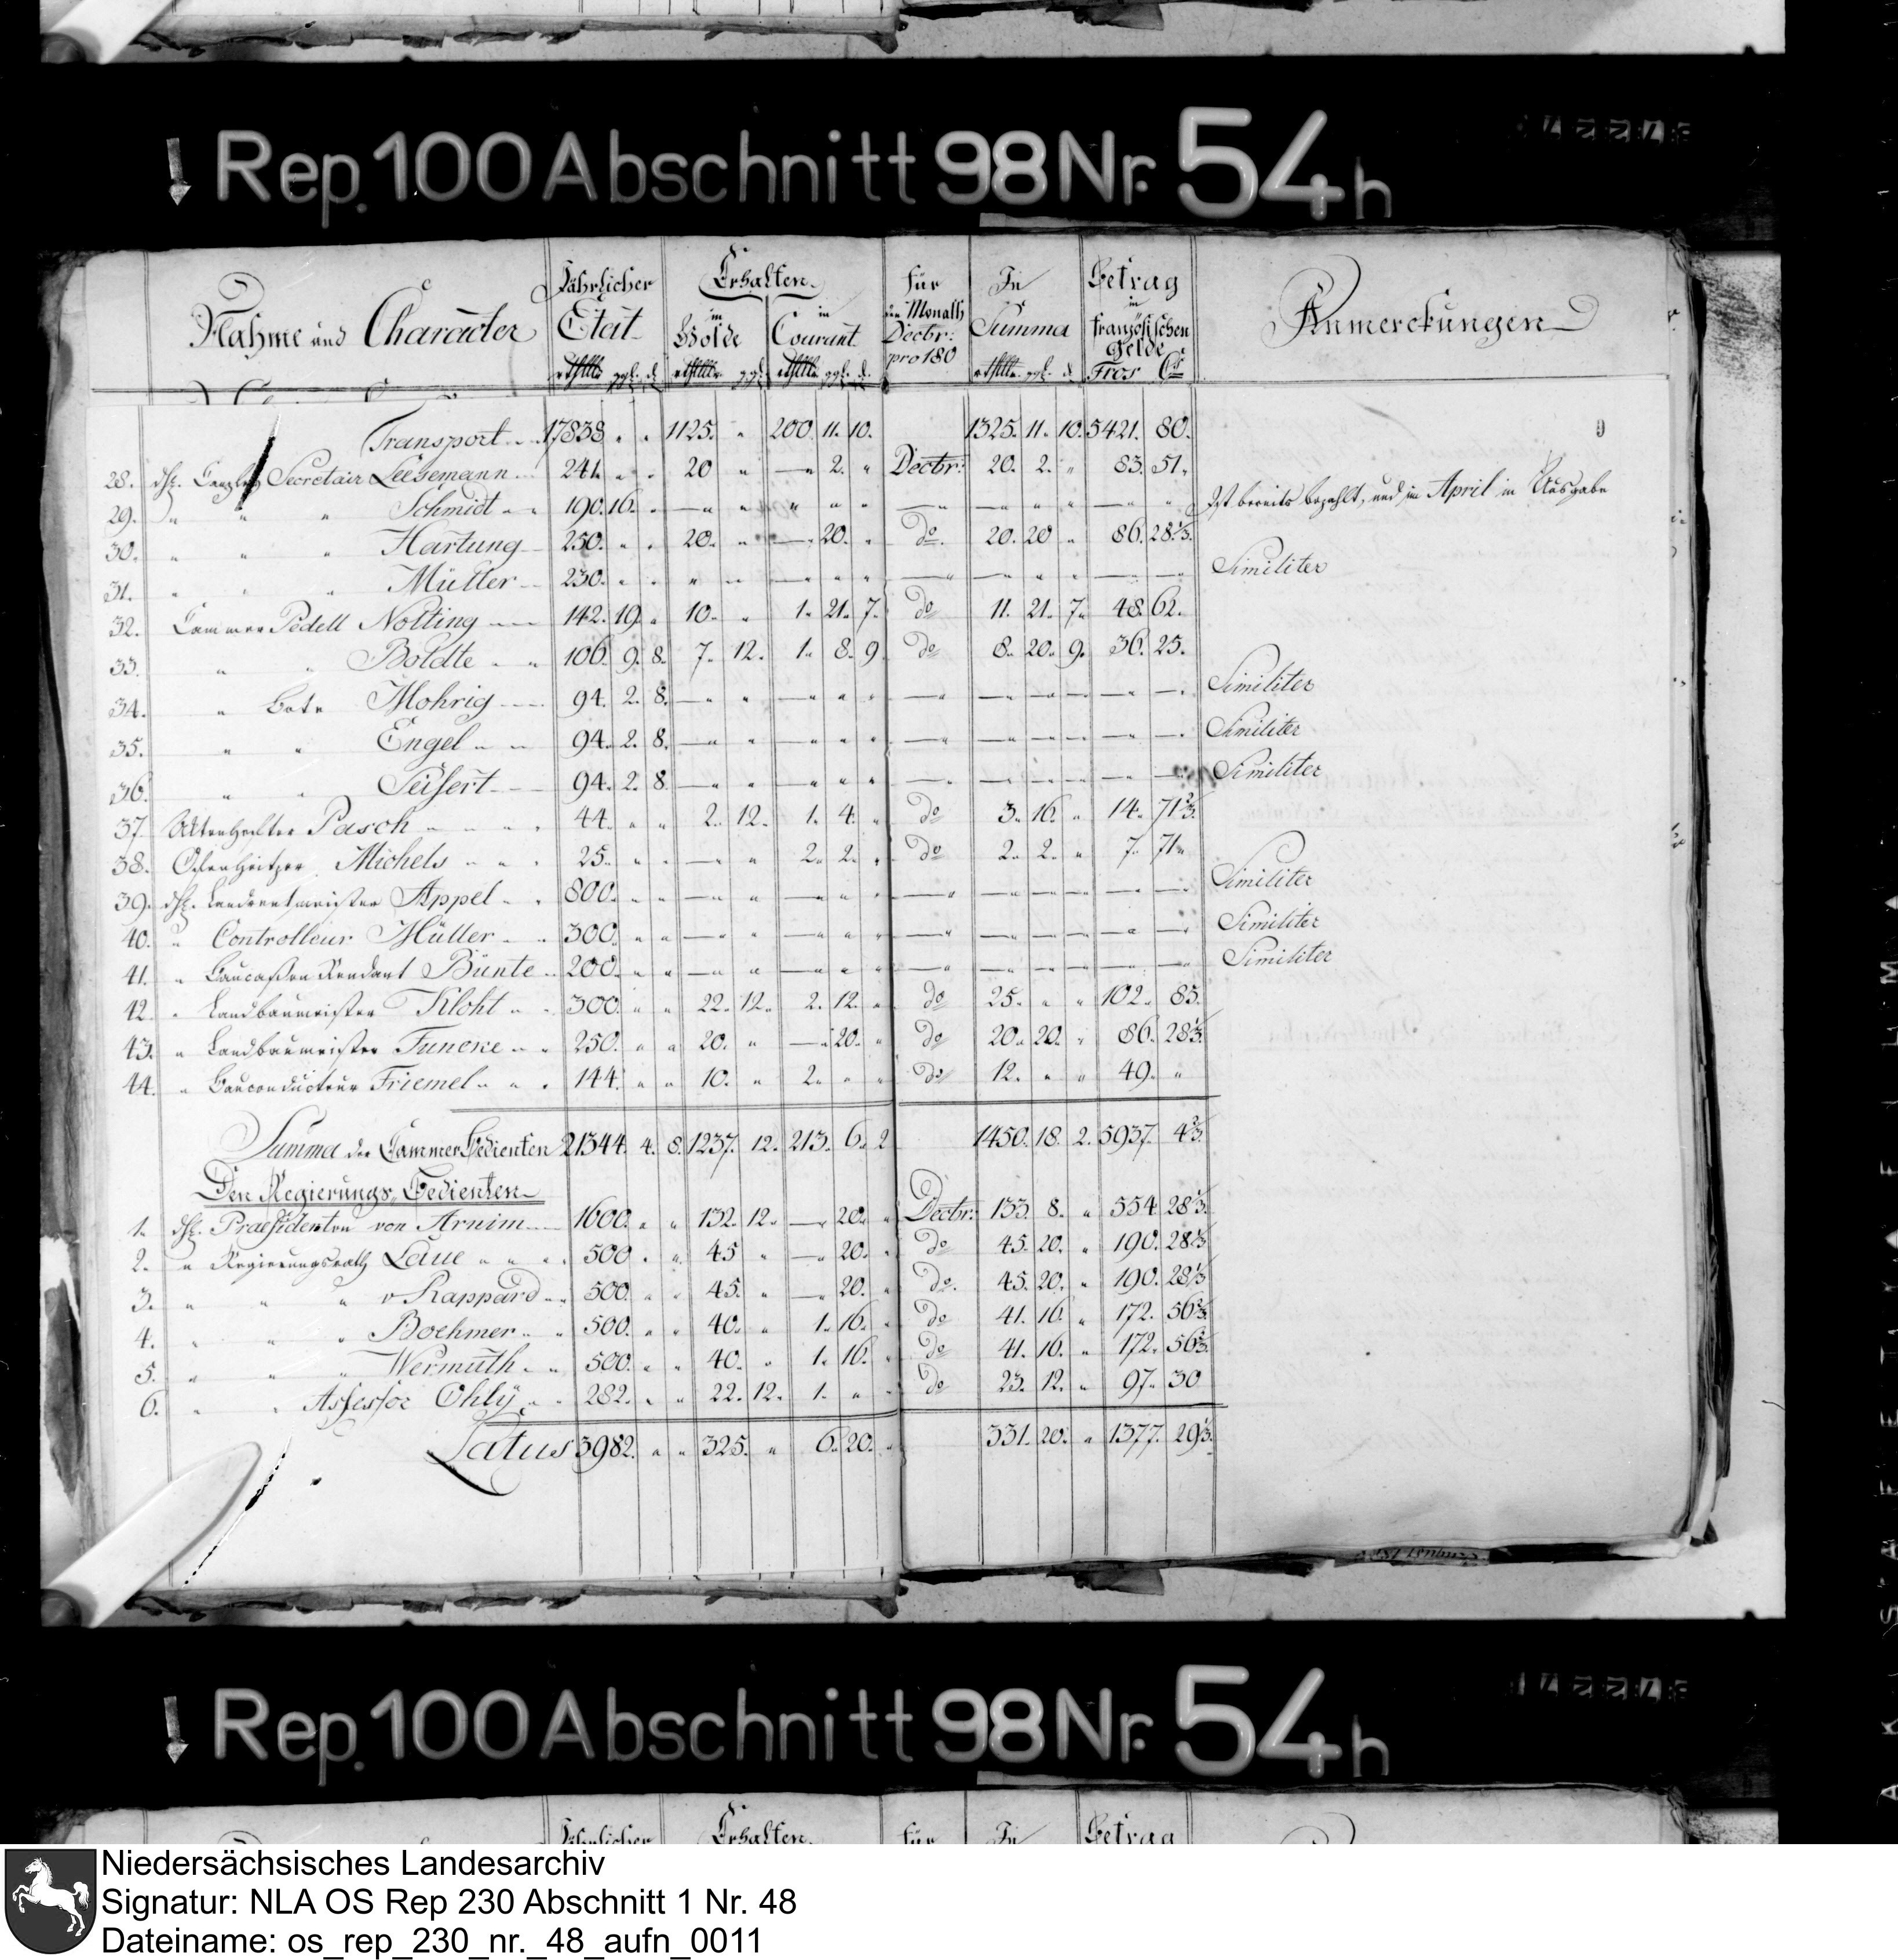 Rep. 100 Abschnitt 98 Nr. 54 h
Nahme und Character
Jährlicher Etat
rthlr. ggl. d.
Erhalten
in Golde
rthlr. ggl.
in Courant
rthlr. ggl. d.
für den Monath Decbr: pro 180
In Summa
rthlr. ggl. d.
Betrag in französischen Gelde
Frcs Cs
Anmerckungen
Transport 17838 " " 1125. " 200. 11. 10. 1325. 11. 10. 5421. 80.
9
28. Secretair Leesemann 241. " " 20 " — 2. " Decbr: 20. 2. " 83. 51.
29. " " " Schmidt 190. 16. " — " " " " — — " " — " Ist bereits bezahlt, und im April in Ausgabe
30. " " " Hartung 250. " " 20. " — 20. " do. 20. 20 " 86. 28 1/3.
31. " " " Müller 230. " " " " — " " — — " " — — Similiter
32. Cammer Pedell Nolting 142. 19. " 10. " 1. 21. 7. do 11. 21. 7. 48. 62.
33. " " Boldte 106. 9. 8. 7. 12. 1. 8. 9 do 8. 20. 9. 36. 25.
34. " Bote Mohrig 94. 2. 8. — " — " " — — — — — — Similiter
35. " " Engel 94. 2. 8. — " — " " — — — — — — Similiter
36. " " Seifert 94. 2. 8. — " — " " — — — — — — Similiter
37. Aktenhefter Pasch 44. " " 2. 12. 1. 4. " do 3. 16. " 14. 71 2/3.
38. Ofenheitzer Michels 25. " " — " 2. 2. " do 2. 2. " 7. 71
39. Landrentmeister Appel 800. " " — " — " " — — — — — — Similiter
40. " Controlleur Müller 300. " " — " — " " — — — — — — Similiter
41. " Baucassen Rendant Bünte 200. " " — " — " " — — — — — — Similiter
42. " Landbaumeister Kloht 300. " " 22. 12. 2. 12. " do 25. " " 102. 85.
43. " Landbaumeister Funcke 250. " " 20. " — 20. " do 20. 20. " 86. 28 1/3.
44. " Bauconducteur Friemel 144. " " 10. " 2. " " do 12. " " 49. "
Summa der Cammer Bedienten 21344. 4. 8. 1237. 12. 213. 6. 2 1450. 18. 2. 5937. 4 2/3.
Den Regierungs Bedienten
1. Praesidenten von Arnim 1600. " " 132. 12. — 20. " Decbr: 133. 8. " 554. 28 1/3.
2. " Regierungsrath Laue 500. " " 45 " — 20. " do 45. 20. " 190. 28 1/3
3. " " " v Rappard 500. " " 45. " — 20. " do. 45. 20. " 190. 28 1/3
4. " " " Boehmer 500. " " 40. " 1. 16. " do 41. 16. " 172. 56 2/3.
5. " " " Wermuth 500. " " 40. " 1. 16. " do 41. 16. " 172. 56 2/3.
6. " " Assessor Ohly 282. " " 22. 12. 1. " " do 23. 12. " 97. 30
Latus 3982. " " 325. " 6. 20. " 331. 20. " 1377. 29 1/3.
Rep. 100 Abschnitt 98 Nr. 54 h
Jährlicher Erhalten. für In Betrag
Niedersächsisches Landesarchiv
Signatur: NLA OS Rep 230 Abschnitt 1 Nr. 48
Dateiname: os_rep_230_nr._48_aufn_0011